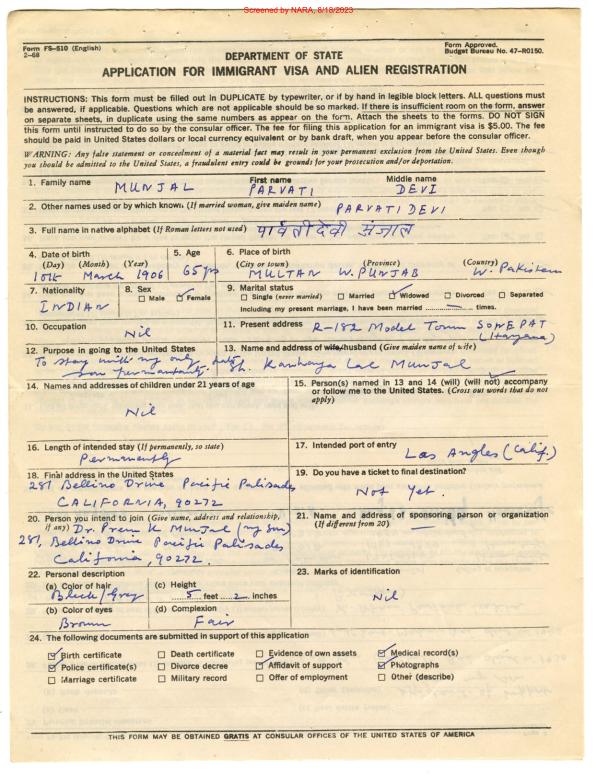 Screened by NARA, 8/18/2023
Form FS-510 (English)
2-68
Form Approved.
Budget Bureau No. 47-R0150.
DEPARTMENT OF STATE
APPLICATION FOR IMMIGRANT VISA AND ALIEN REGISTRATION
INSTRUCTIONS: This form must be filled out in DUPLICATE by typewriter, or if by hand in legible block letters. ALL questions must
be answered, if applicable. Questions which are not applicable should be so marked. If there is insufficient room on the form, answer
on separate sheets, in duplicate using the same numbers as appear on the form. Attach the sheets to the forms. DO NOT SIGN
this form until instructed to do so by the consular officer. The fee for filing this application for an immigrant visa is $5.00. The fee
should be paid in United States dollars or local currency equivalent or by bank draft, when you appear before the consular officer.
WARNING: Any false statement or concealment of a material fact may result in your permanent exclusion from the United States. Even though
you should be admitted to the United States, a fraudulent entry could be grounds for your prosecution and/or deportation.
1. Family name First name Middle name
MUNJAL PARVATI DEVI
2. Other names used or by which known (If married woman, give maiden name) PARVATI DEVI
3. Full name in native alphabet (If Roman letters not used) पार्वती देवी मुंजाल
4. Date of birth
(Day) (Month) (Year)
10th March 1906
5. Age
65 yrs
6. Place of birth
(City or town) (Province) (Country)
MULTAN W. PUNJAB W. Pakistan
7. Nationality
INDIAN
8. Sex
Male Female
9. Marital status
Single (never married) Married Widowed Divorced Separated
Including my present marriage, I have been married ........ times.
10. Occupation
Nil
11. Present address R-182 Model Town SONEPAT
(Haryana)
12. Purpose in going to the United States
To stay with my only
son permanently.
13. Name and address of wife/husband (Give maiden name of wife)
late Sh. Kanhaya Lal Munjal
14. Names and addresses of children under 21 years of age
Nil
15. Person(s) named in 13 and 14 (will) (will not) accompany
or follow me to the United States. (Cross out words that do not
apply)
16. Length of intended stay (If permanently, so state)
Permanently
17. Intended port of entry
Los Angles (Calif.)
18. Final address in the United States
281 Bellino Drive Pacific Palisades
CALIFORNIA, 90272
19. Do you have a ticket to final destination?
Not Yet.
20. Person you intend to join (Give name, address and relationship,
if any) Dr. Prem K Munjal (my son)
281, Bellino Drive Pacific Palisades
California, 90272.
21. Name and address of sponsoring person or organization
(If different from 20)
22. Personal description
(a) Color of hair
Black/Gray
(c) Height
5 feet 2 inches
(b) Color of eyes
Brown
(d) Complexion
Fair
23. Marks of identification
Nil
24. The following documents are submitted in support of this application
Birth certificate Death certificate Evidence of own assets Medical record(s)
Police certificate(s) Divorce decree Affidavit of support Photographs
Marriage certificate Military record Offer of employment Other (describe)
THIS FORM MAY BE OBTAINED GRATIS AT CONSULAR OFFICES OF THE UNITED STATES OF AMERICA